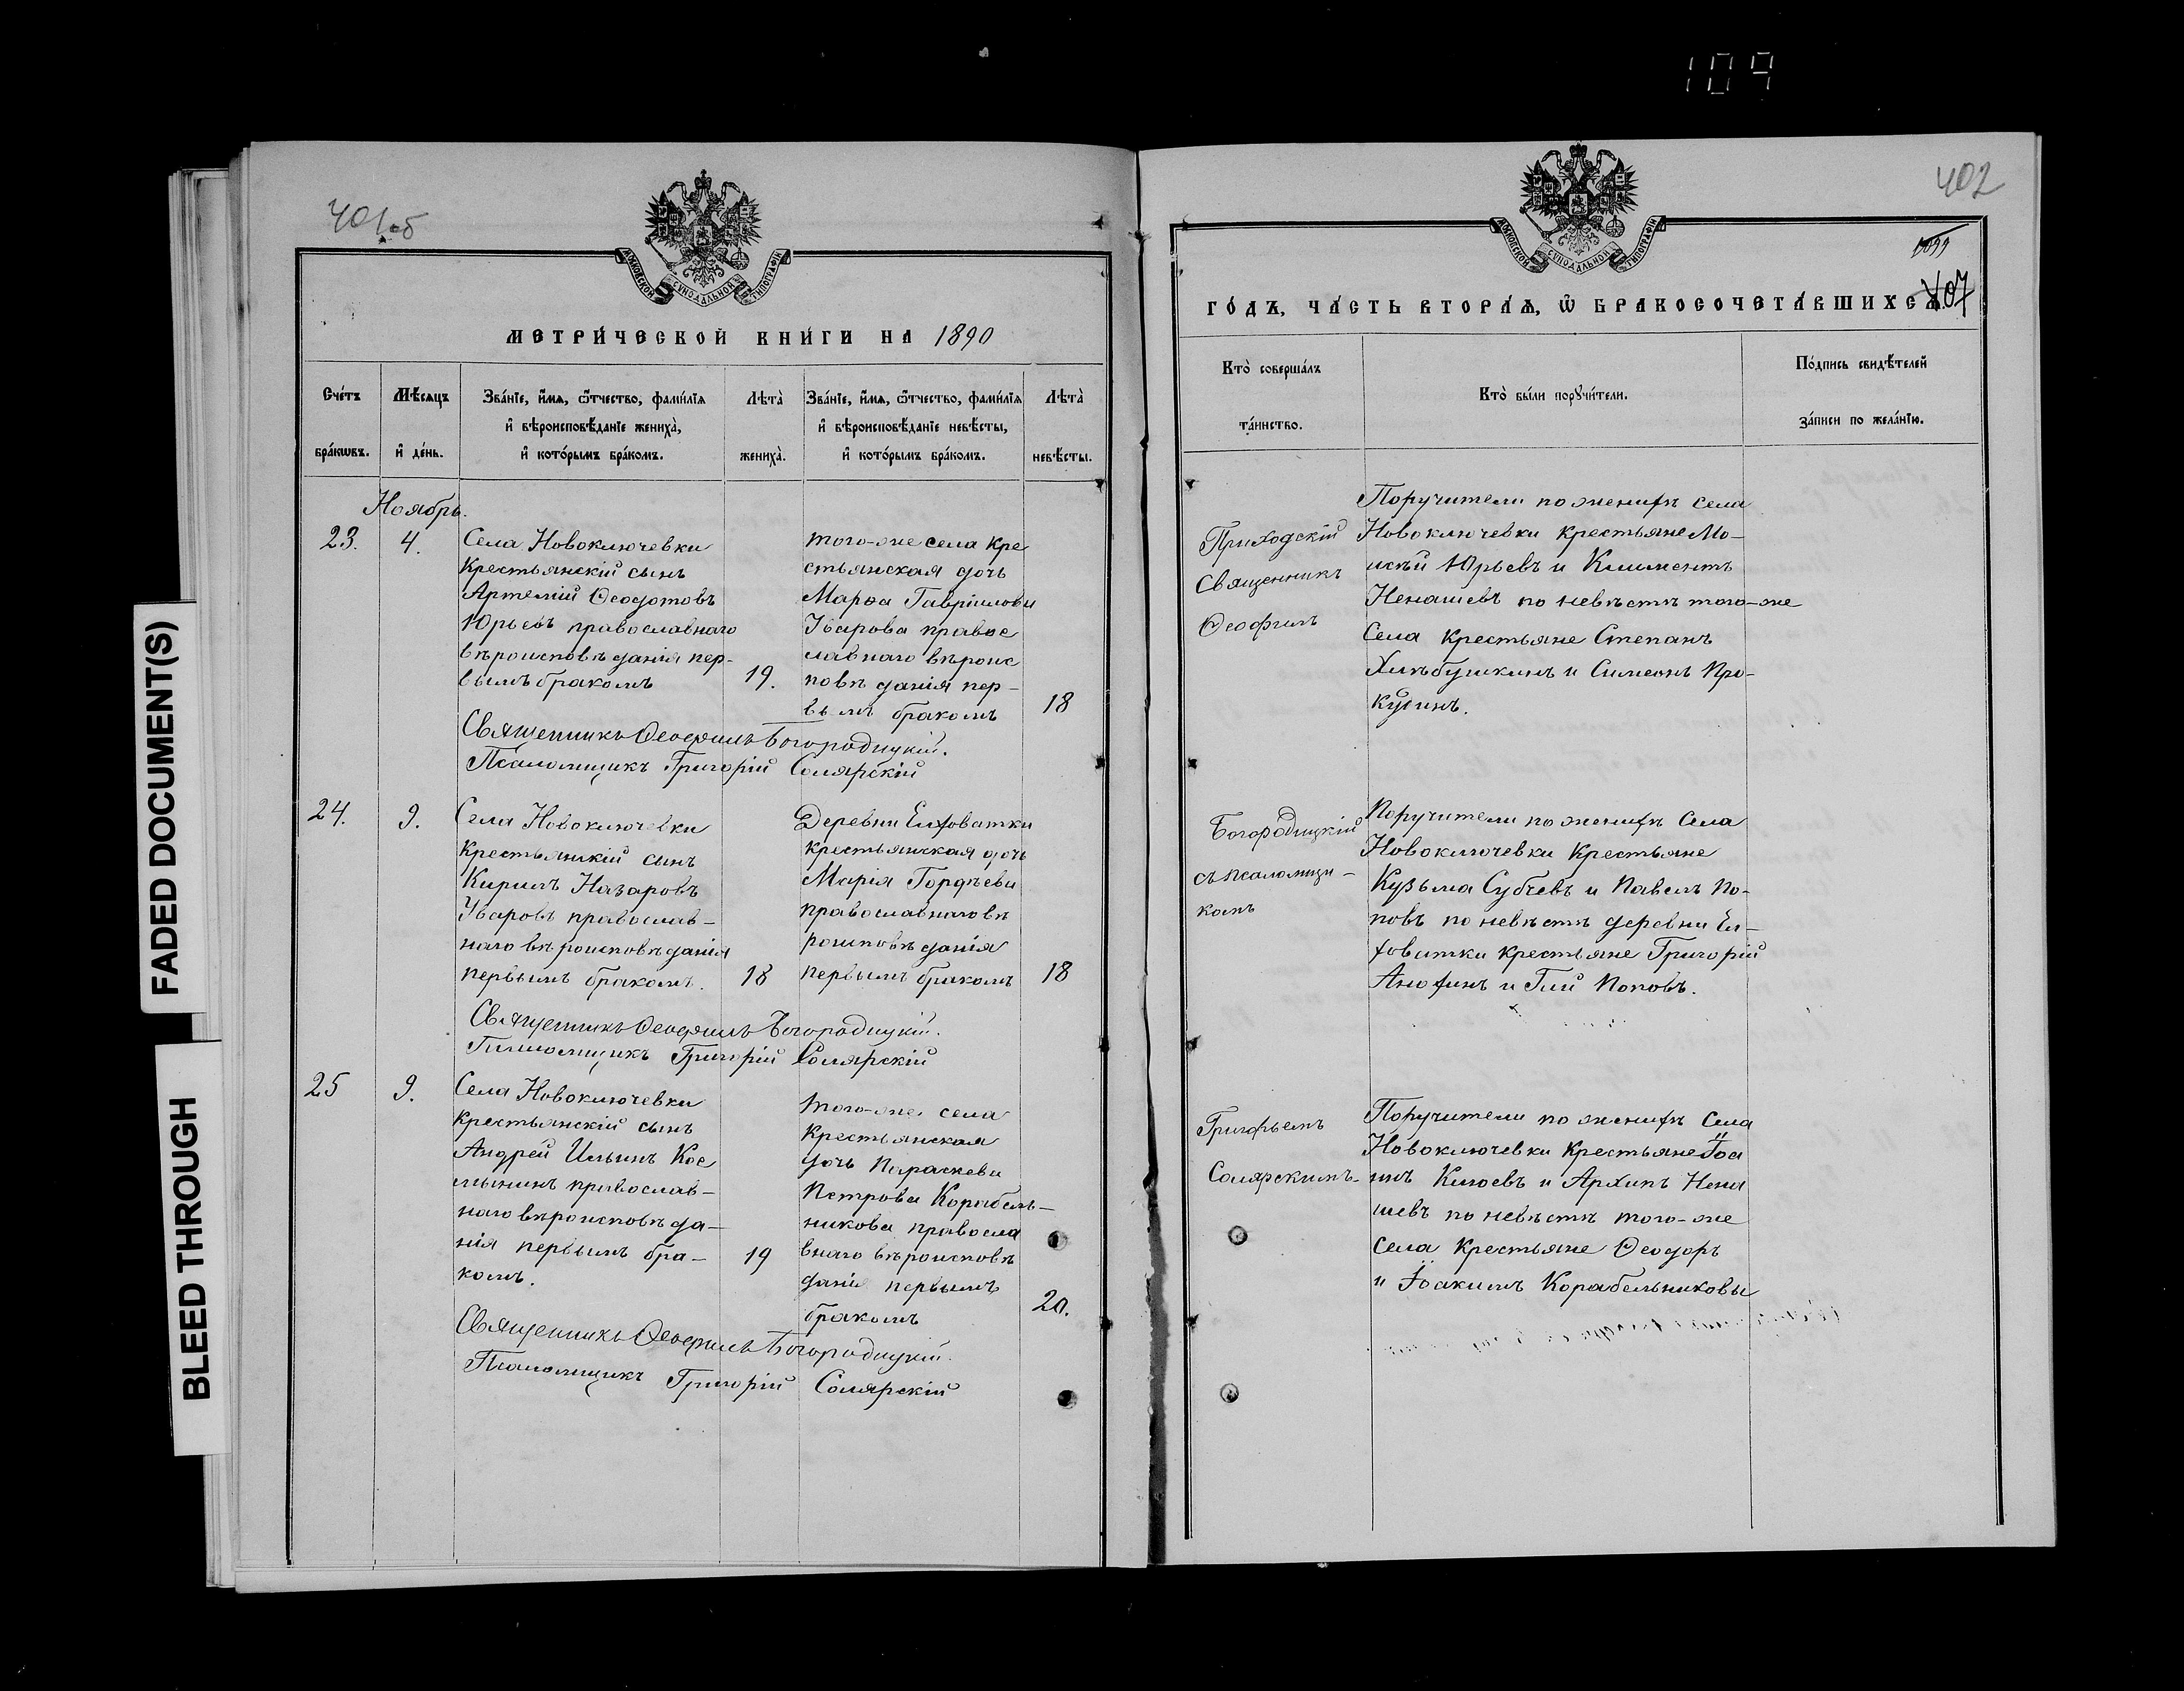 104
FADED DOCUMENT(S)
BLEED THROUGH
401об
МОСКОВСКОЙ СѴНОДАЛЬНОЙ ТИПОГРАФІИ
МЕТРИ́ЧЕСКОЙ КНИ́ГИ НА 1890
Сче́тъ бра́кѡвъ.
Мѣ́сяцъ и҆ де́нь.
Зва́нїе, и҆́мѧ, ѻ҆́тчество, фами́лїѧ и҆ вѣроисповѣ́данїе жениха̀, и҆ кото́рымъ бра́комъ.
Лѣта̀ жениха̀.
Зва́нїе, и҆́мѧ, ѻ҆́тчество, фами́лїѧ и҆ вѣроисповѣ́данїе невѣ́сты, и҆ кото́рымъ бра́комъ.
Лѣта̀ невѣ́сты.
Ноябрь.
23.
4.
Села Новоключевки
Крестьянскій сынъ
Артемій Ѳеодотовъ
Юрьевъ православнаго
вѣроисповѣданія пер-
вымъ бракомъ
19.
того-же села кре
стьянская дочь
Марѳа Гавріилова
Уварова правос
лавнаго вѣроис
повѣданія пер-
вымъ бракомъ
18
Священникъ Ѳеофилъ Богородицкій.
Псаломщикъ Григорій Солярскій
24.
9.
Села Новоключевки
Крестьянскій сынъ
Кирилъ Назаровъ
Уваровъ православ-
наго вѣроисповѣданія
первымъ бракомъ.
18
Деревни Елховатки
крестьянская дочь
Марія Гордѣева
православнаго вѣ
роисповѣданія
первымъ бракомъ
18
Священникъ Ѳеофилъ Богородицкій.
Псаломщикъ Григорій Солярскій
25
9.
Села Новоключевки
крестьянскій сынъ
Андрей Ильинъ Кос
мынинъ православ-
наго вѣроисповѣда-
нія первымъ бра-
комъ.
19
того-же села
Крестьянская
дочь Параскева
Петрова Корабель-
никова правосла
внаго вѣроисповѣ
данія первымъ
бракомъ
20.
Священникъ Ѳеофилъ Богородицкій.
Псаломщикъ Григорій Солярскій
402
МОСКОВСКОЙ СѴНОДАЛЬНОЙ ТИПОГРАФІИ
407
ГО́ДЪ, ЧА́СТЬ ВТОРА́Ѧ, Ѽ БРАКОСОЧЕТА́ВШИХСѦ.
Кто̀ соверша́лъ та́инство.
Кто̀ бы́ли порꙋчи́тели.
По́дпись свидѣ́телей за́писи по жела́нїю.
Приходскій
Священникъ
Ѳеофилъ
Поручители по женихѣ села
Новоключевки Крестьяне Мо-
исѣй Юрьевъ и Климентъ
Ненашевъ по невѣстѣ того-же
Села крестьяне Степанъ
Хлѣбушкинъ и Симеонъ Про-
кудинъ.
Богородицкій
съ псаломщи-
комъ
Поручители по женихѣ Села
Новоключевки Крестьяне
Кузьма Субчевъ и Павелъ По-
повъ по невѣстѣ деревни Ел-
ховатки крестьяне Григорій
Анохинъ и Гпій Поповъ.
Григорьемъ
Солярскимъ-
Поручители по женихѣ Села
Новоключевки Крестьяне Іоа
ннъ Клюевъ и Архипъ Нена
шевъ по невѣстѣ того-же
села Крестьяне Ѳеодоръ
и Іоакимъ Корабельниковы